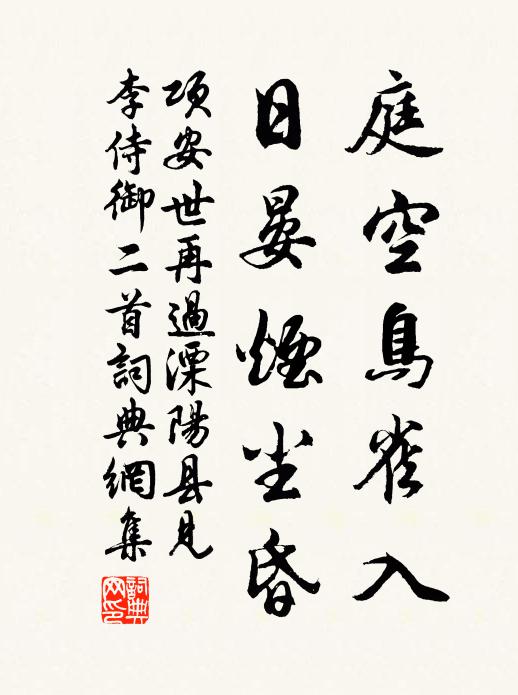 庭空鳥雀入
日晏煙尘昏
项安世再過溧陽县見
李侍御二首詞典網集
詞典
网印